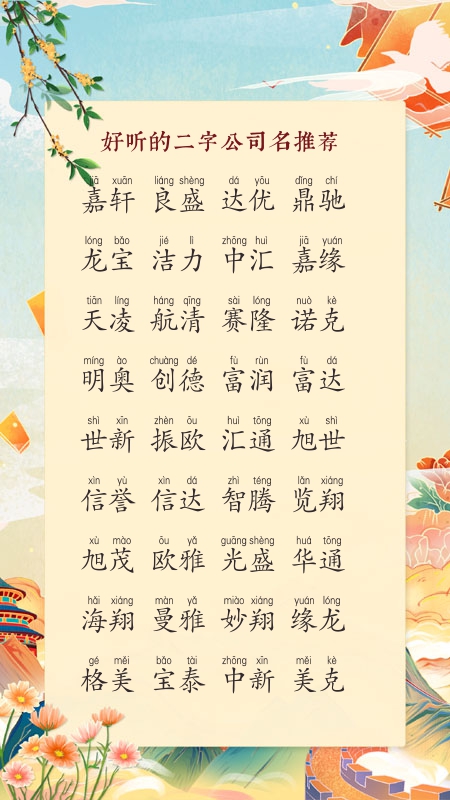 好听的二字公司名推荐
jiā xuān liáng shèng dá yōu dǐng chí
嘉轩 良盛 达优 鼎驰
lóng bǎo jié lì zhōng huì jiā yuán
龙宝 洁力 中汇 嘉缘
tiān líng háng qīng sài lóng nuò kè
天凌 航清 赛隆 诺克
míng ào chuàng dé fù rùn fù dá
明奥 创德 富润 富达
shì xīn zhèn ōu huì tōng xù shì
世新 振欧 汇通 旭世
xìn yù xìn dá zhì téng lǎn xiáng
信誉 信达 智腾 览翔
xù mào ōu yǎ guāng shèng huá tōng
旭茂 欧雅 光盛 华通
hǎi xiáng màn yǎ miào xiáng yuán lóng
海翔 曼雅 妙翔 缘龙
gé měi bǎo tài zhōng xīn měi kè
格美 宝泰 中新 美克